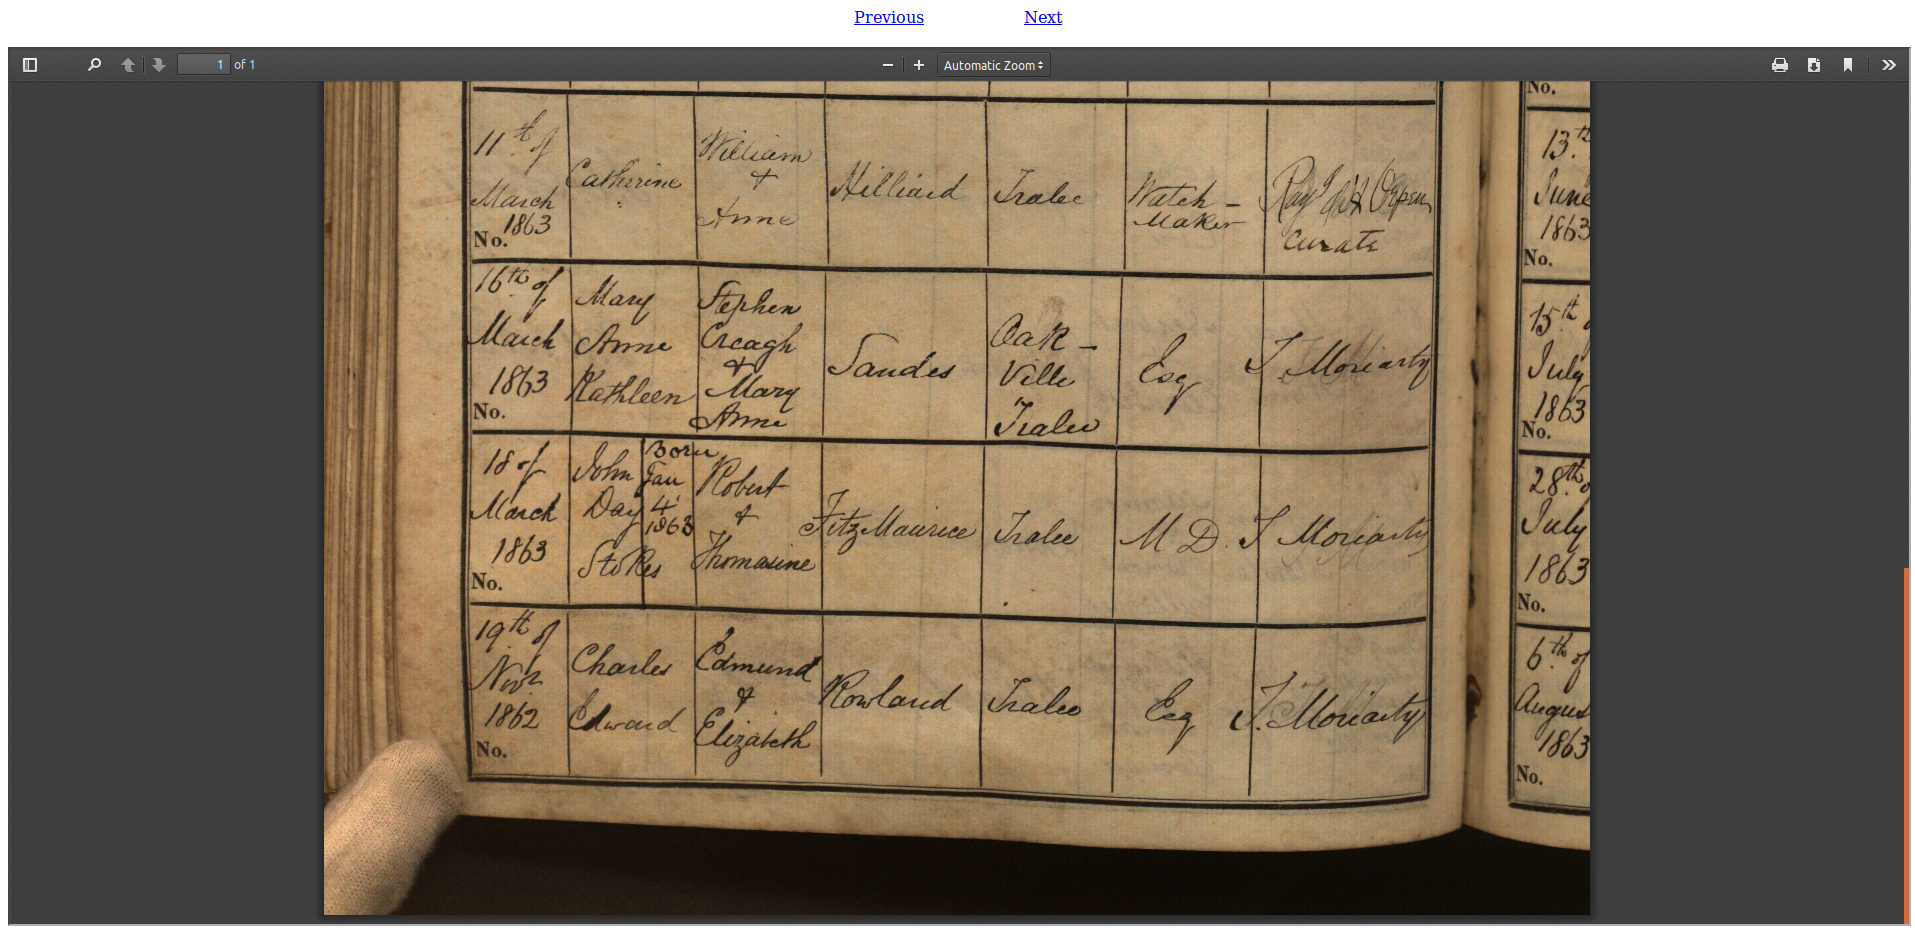 Previous Next
1 of 1 Automatic Zoom
11th of
March
1863
No.
Catherine
William
&
Anne
Hilliard
Tralee
Watch-
Maker
Orpen
Curate
16th of
March
1863
No.
Mary
Anne
Kathleen
Stephen
Creagh
&
Mary
Anne
Sandes
Oak-
Ville
Tralee
Esq
T. Moriarty
18 of
March
1863
No.
John
Day
Stokes
Born
Jan
4
1863
Robert
&
Thomasine
FitzMaurice
Tralee
M D.
T Moriarty
19th of
Novr
1862
No.
Charles
Edward
Edmund
&
Elizabeth
Rowland
Tralee
Esq
T. Moriarty
No.
13.th
June
1863
No.
15th
July
1863
No.
28th
July
1863
No.
6th of
Augus
1863
No.